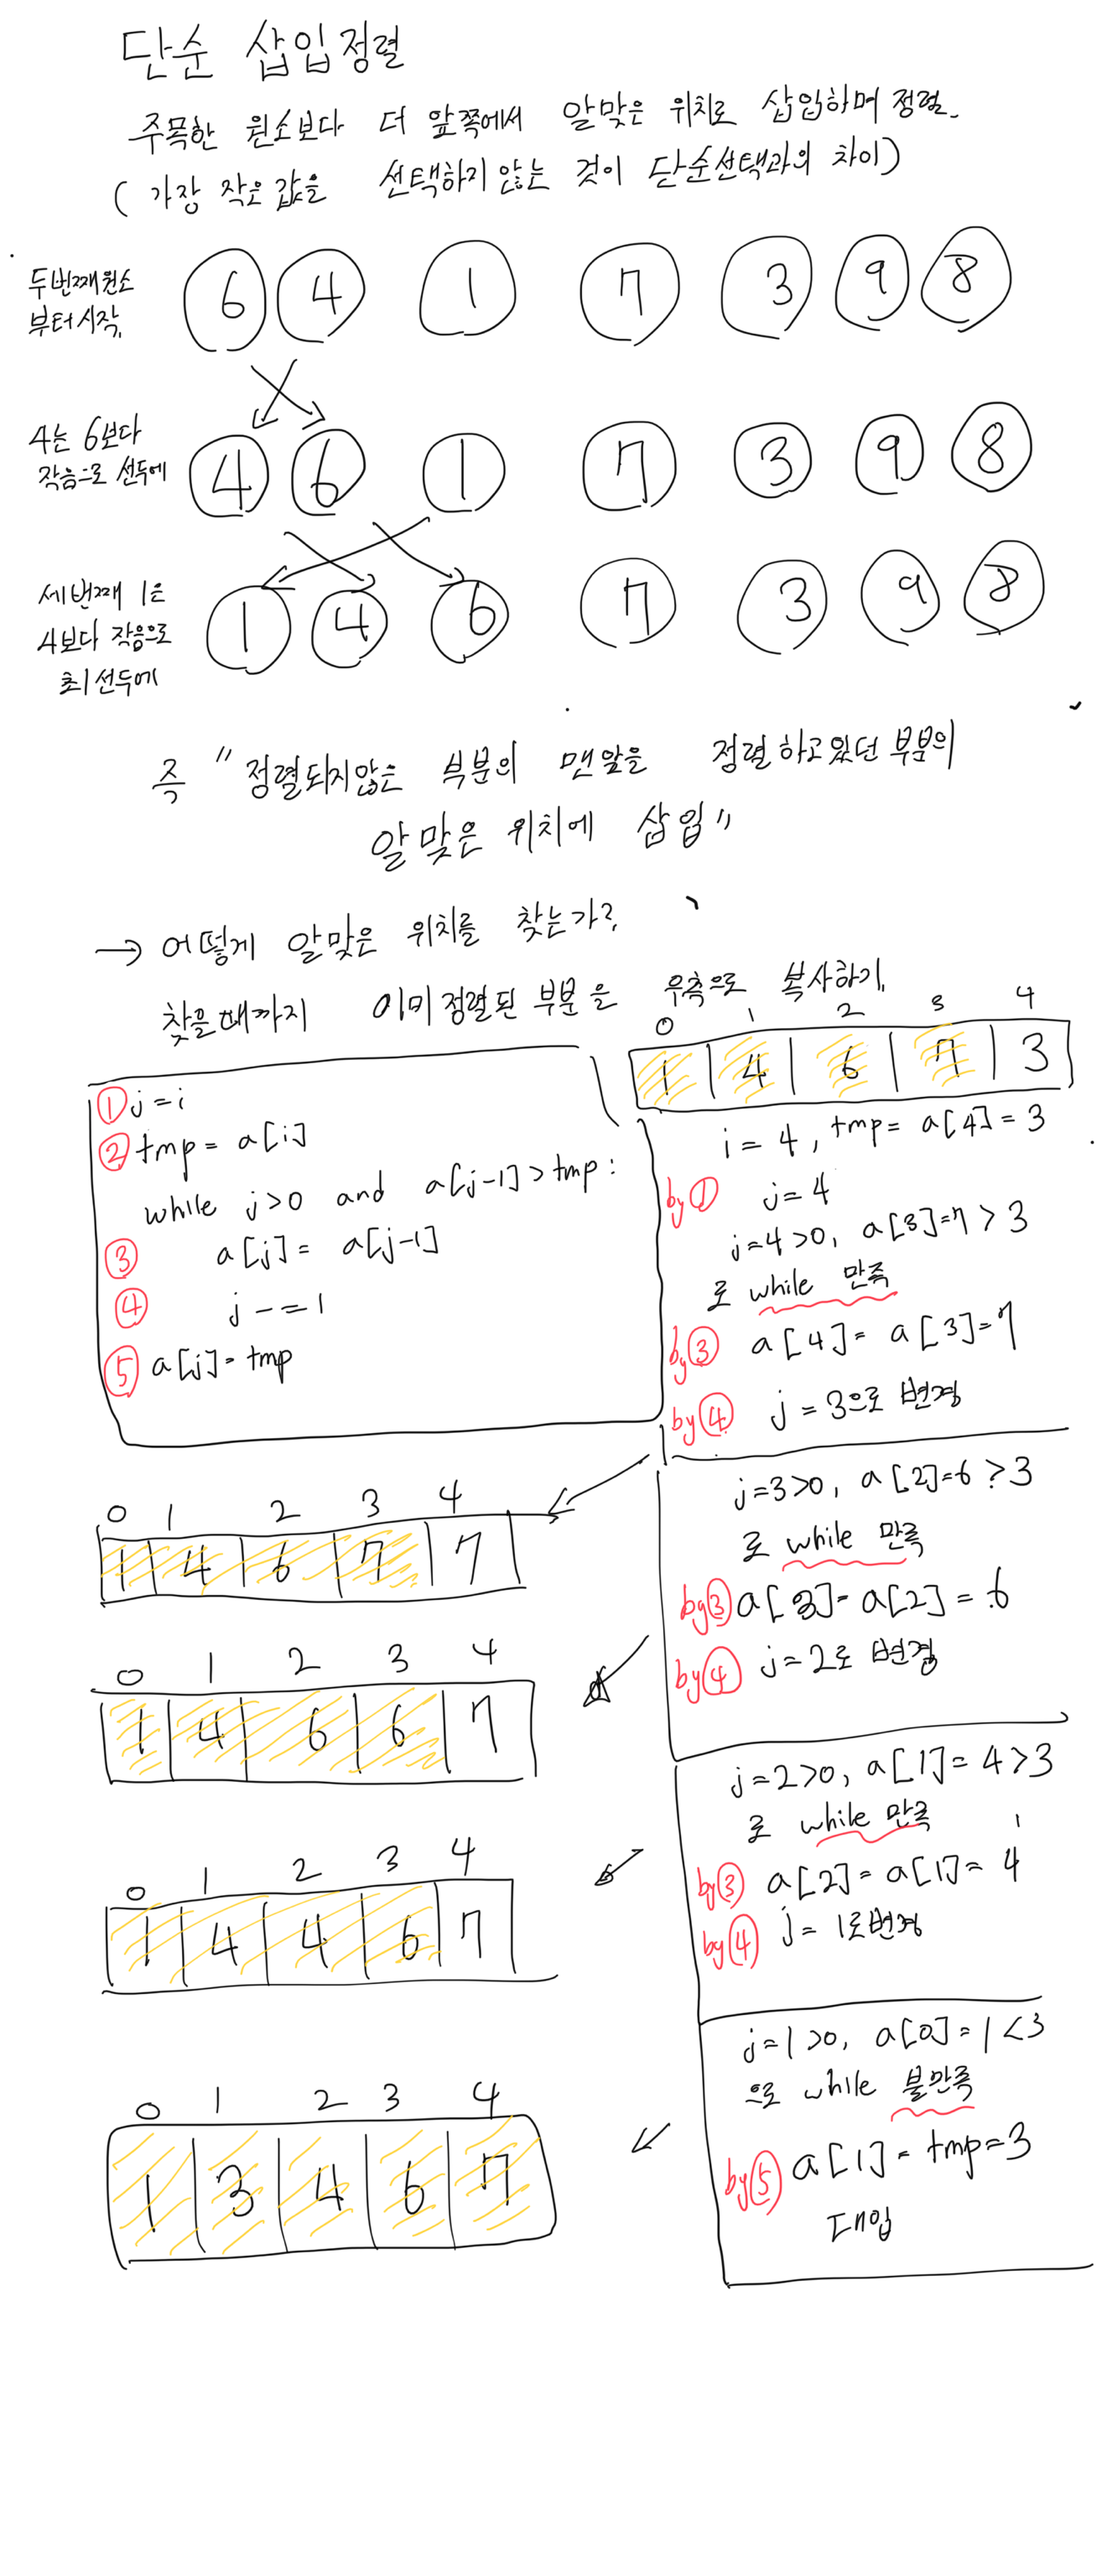 단순 삽입정렬
주목한 원소보다 더 앞쪽에서 알맞은 위치로 삽입하며 정렬.
( 가장 작은 값을 선택하지 않는 것이 단순선택과의 차이)
두번째원소
부터시작.
6 4 1 7 3 9 8
4는 6보다
작음으로 선두에
4 6 1 7 3 9 8
세번째 1은
4보다 작음으로
최선두에
1 4 6 7 3 9 8
즉 "정렬되지않은 부분의 맨앞을 정렬하고있던 부분의
알맞은 위치에 삽입"
→ 어떻게 알맞은 위치를 찾는가?
찾을때까지 이미정렬된 부분을 우측으로 복사하기.
① j=i
② tmp = a[i]
while j>0 and a[j-1]>tmp:
③ a[j] = a[j-1]
④ j -= 1
⑤ a[j]=tmp
0 1 2 3 4
1 4 6 7 3
i = 4, tmp= a[4]=3
by① j=4
j=4>0, a[3]=7 > 3
로 while 만족
by③ a[4]= a[3]=7
by④ j = 3으로 변경
0 1 2 3 4
1 4 6 7 7
j=3>0, a[2]=6 > 3
로 while 만족
by③ a[3]= a[2] = 6
by④ j=2로 변경
0 1 2 3 4
1 4 6 6 7
j=2>0, a[1]= 4>3
로 while 만족
by③ a[2]= a[1]= 4
by④ j= 1로변경
0 1 2 3 4
1 4 4 6 7
j=1>0, a[0]=1<3
으로 while 불만족
by⑤ a[1]= tmp=3
대입
0 1 2 3 4
1 3 4 6 7